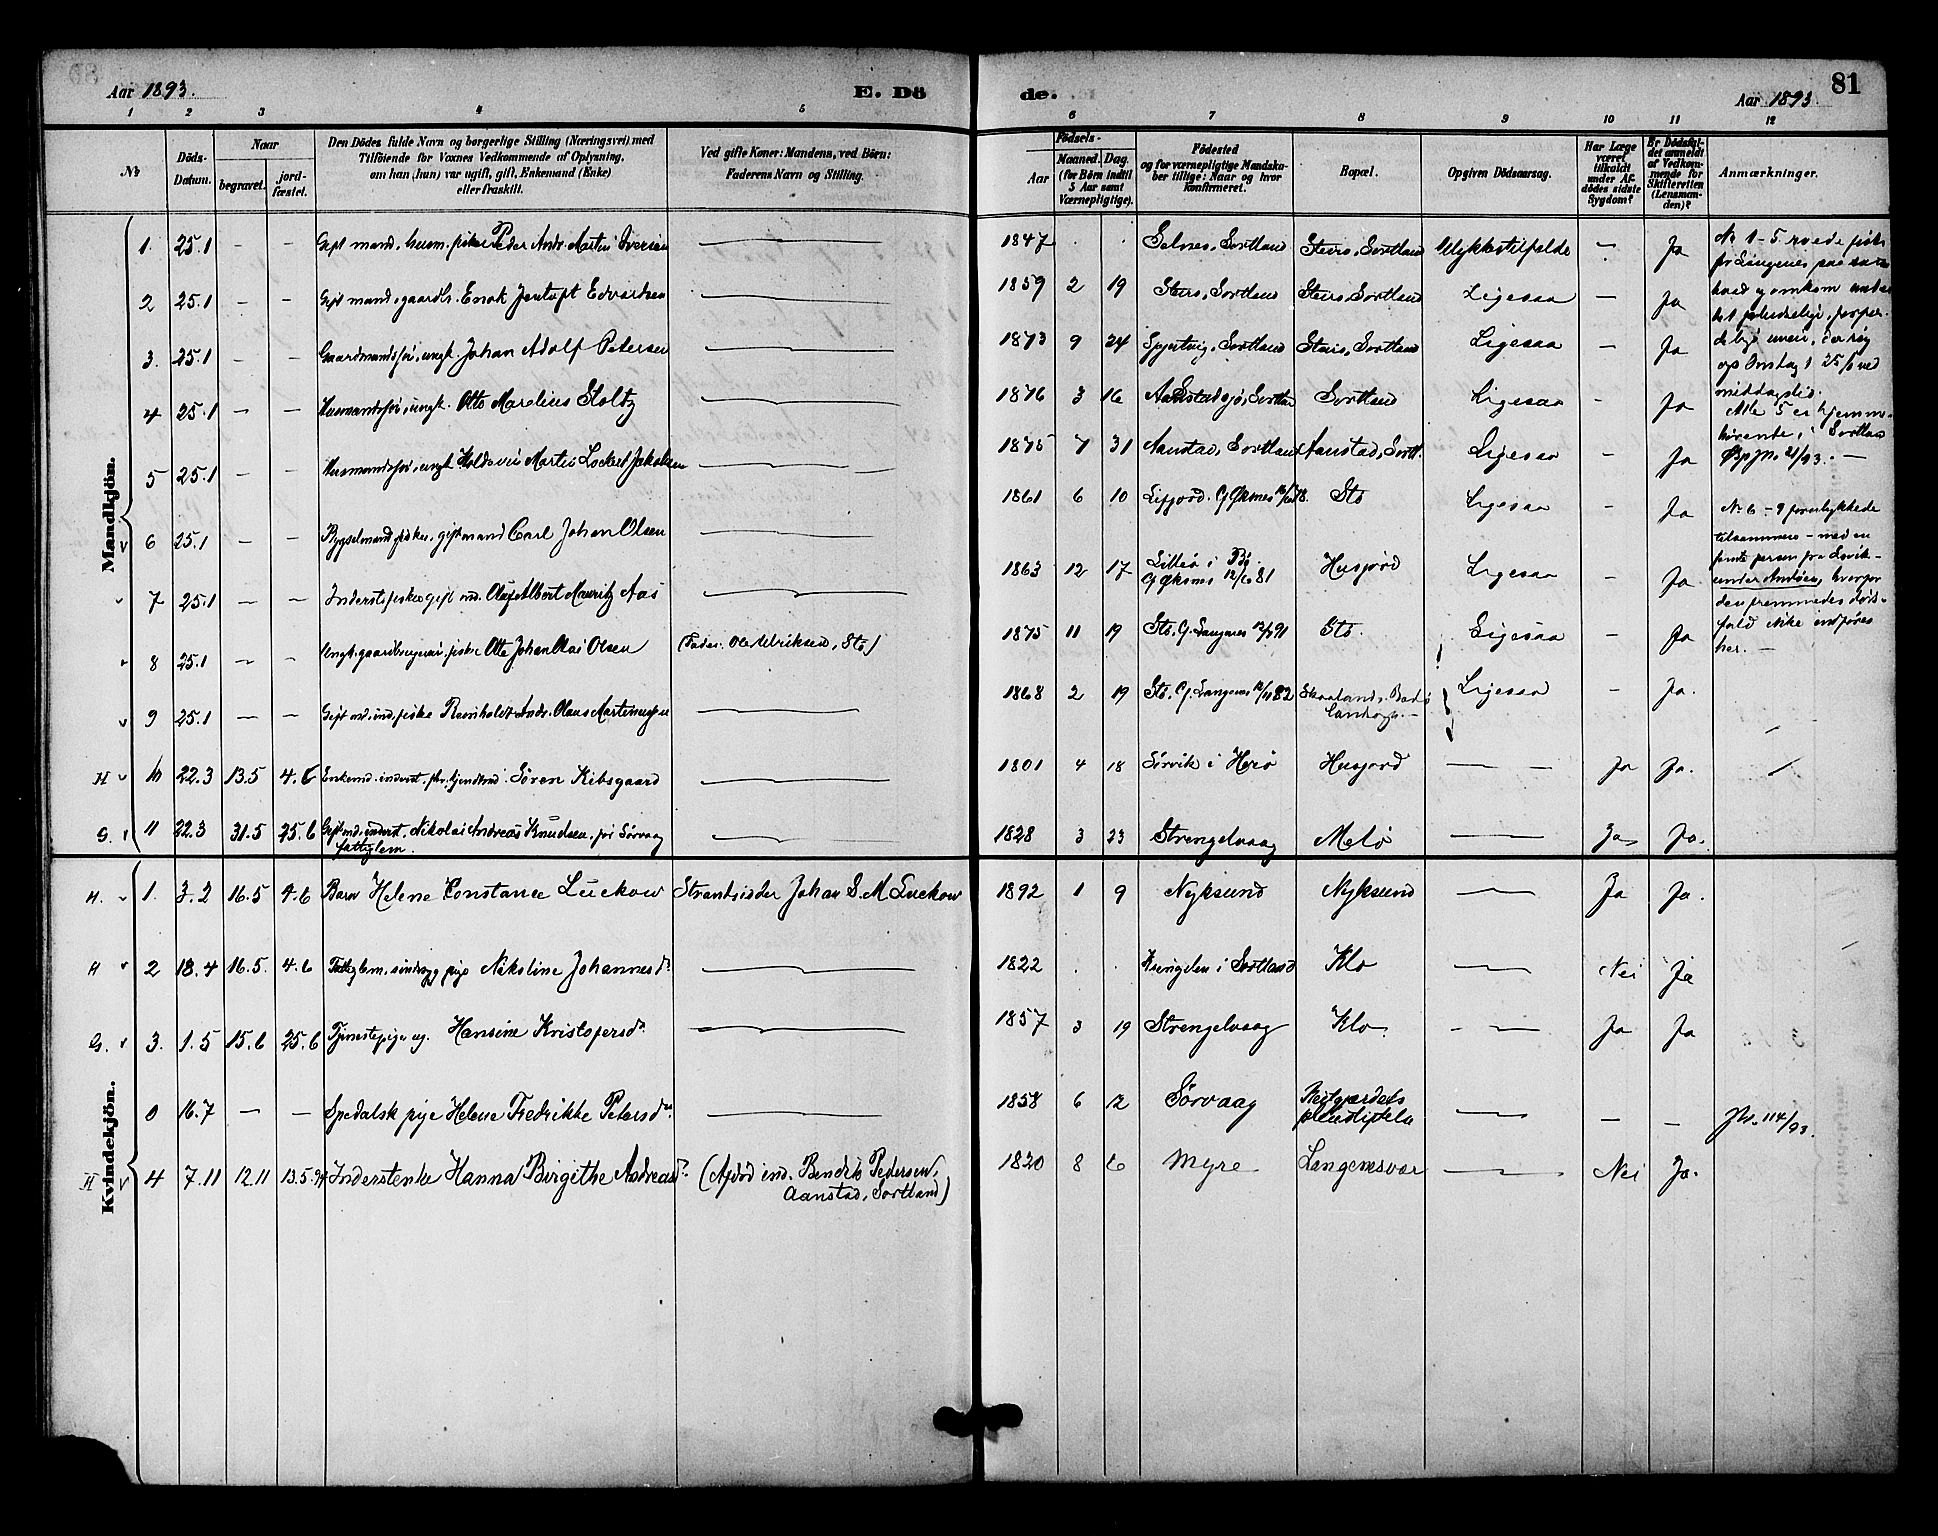 Aar 1893. E. Dö
de. Aar 1893. 81
1 2 3 4 5 6 7 8 9 10 11 12
№
Döds-
Datum.
Naar
begravet.
jord-
fæstet.
Den Dödes fulde Navn og borgerlige Stilling (Næringsvei) med
Tilföiende for Voxnes Vedkommende af Oplysning,
om han (hun) var ugift, gift, Enkemand (Enke)
eller fraskilt.
Ved gifte Koner: Mandens, ved Börn:
Faderens Navn og Stilling.
Födsels-
Aar
Maaned. Dag.
(for Börn indtil
5 Aar samt
Værnepligtige).
Födested
og for værnepligtige Mandska-
ber tillige: Naar og hvor
konfirmeret.
Bopæl.
Opgiven Dödsaarsag.
Har Læge
været
tilkaldt
under Af-
dödes sidste
Sygdom?
Er Dödsfal-
det anmeldt
af Vedkom-
mende for
Skifteretten
(Lensman-
den)?
Anmærkninger.
Mandkjön.
1. 25.1 — — Gift mand, husm. fisker Peder Andr. Martin Iversen 1847 . . Selnes, Sortland Steiro, Sortland Ulykkestilfælde — Ja
2 25.1 — — Gift mand, gaardbr. Enok Jentoft Edvardsen 1859 2 19 Steiro, Sortland Steiro, Sortland Ligesaa — Ja
3. 25.1 — — Gaardmandssøn, ungk. Johan Adolf Petersen 1873 9 24 Sortland Steiro, Sortland Ligesaa — Ja
4 25.1 — — Husmandssøn, ungk. Otto Marelius Stoltz 1876 3 16 Sortland Ligesaa - Ja
5 25.1 — — Husmandssøn, ungk. Martin Lockert Jakobsen 1875 7 31 Aanstad, Sortland Aanstad, Sortl. Ligesaa — Ja
6 25.1 — — Bygselmand, fisker, gift mand Carl Johan Olsen 1861 6 10 Sto Ligesaa — Ja
7 25.1 — — Inderst, fisker, gift md. Olaf Albert Mauritz Aas 1863 12 17 i Bø. Husjord Ligesaa — Ja
8 25.1 — — Otto Johan Olai Olsen (Fader: Ole Ulriksen, Stø) 1875 11 19 Stø. G. Langenes Stø. Ligesaa — Ja
9 25.1 — — Gift md. ind. fisker Reinholdt Andr. Olaus Martinussen 1868 2 19 Stø. G. Langenes Skaaland. Ligesaa — Ja.
№ 1-5 roede fisk
fr Langenes paa
baad og omkom
Alle 5 er hjemme-
hørende i Sortland
№ 6-9 forulykkede
tilsammen - med en
under Andøen, hvorfor
den fremmedes døds-
fald ikke indføres
her. —
H 10 22.3 13.5 4.6 Søren Kibsgaard 1801 4 18 Sørvik i Herø Husjord — Ja Ja.
G. 11 22.3 31.5 25.6 Gift md. inderst, Nikolai Andreas Knudsen, fri Sørvaag 1828 3 23 Strengelvaag Melø — Ja Ja.
fattiglem.
Kvindekjön.
H. 1. 3.2 16.5 4.6 Barn Helene Constance Lückow Strandsidder Johan S. M. Lückow 1892 1 9 Nyksund Nyksund — Ja Ja.
H 2 18.4 16.5. 4.6 Fattiglem, sindsyg pige Nikoline Johannesd. 1822 . . i Sortland Klo — Nei Ja
G. 3. 1.5 15.6 25.6 Tjenestepige ug. Hansine Kristofersd. 1857 3 19 Strengelvaag Klo — Ja Ja
0 16.7 — — Spedalsk pige Helene Fredrikke Petersd. 1858 6 12 Sørvaag Reitgjerdets
pleiestiftelse — — — Jn. 114/93.
H 4 7.11 12.11 13.5.94 Inderstenke Hanna Birgithe Andreasd. (Afdød ind. Bendik Pedersen, 1820 8 6 Myre Langenesvær — Nei Ja.
Aanstad, Sortland)